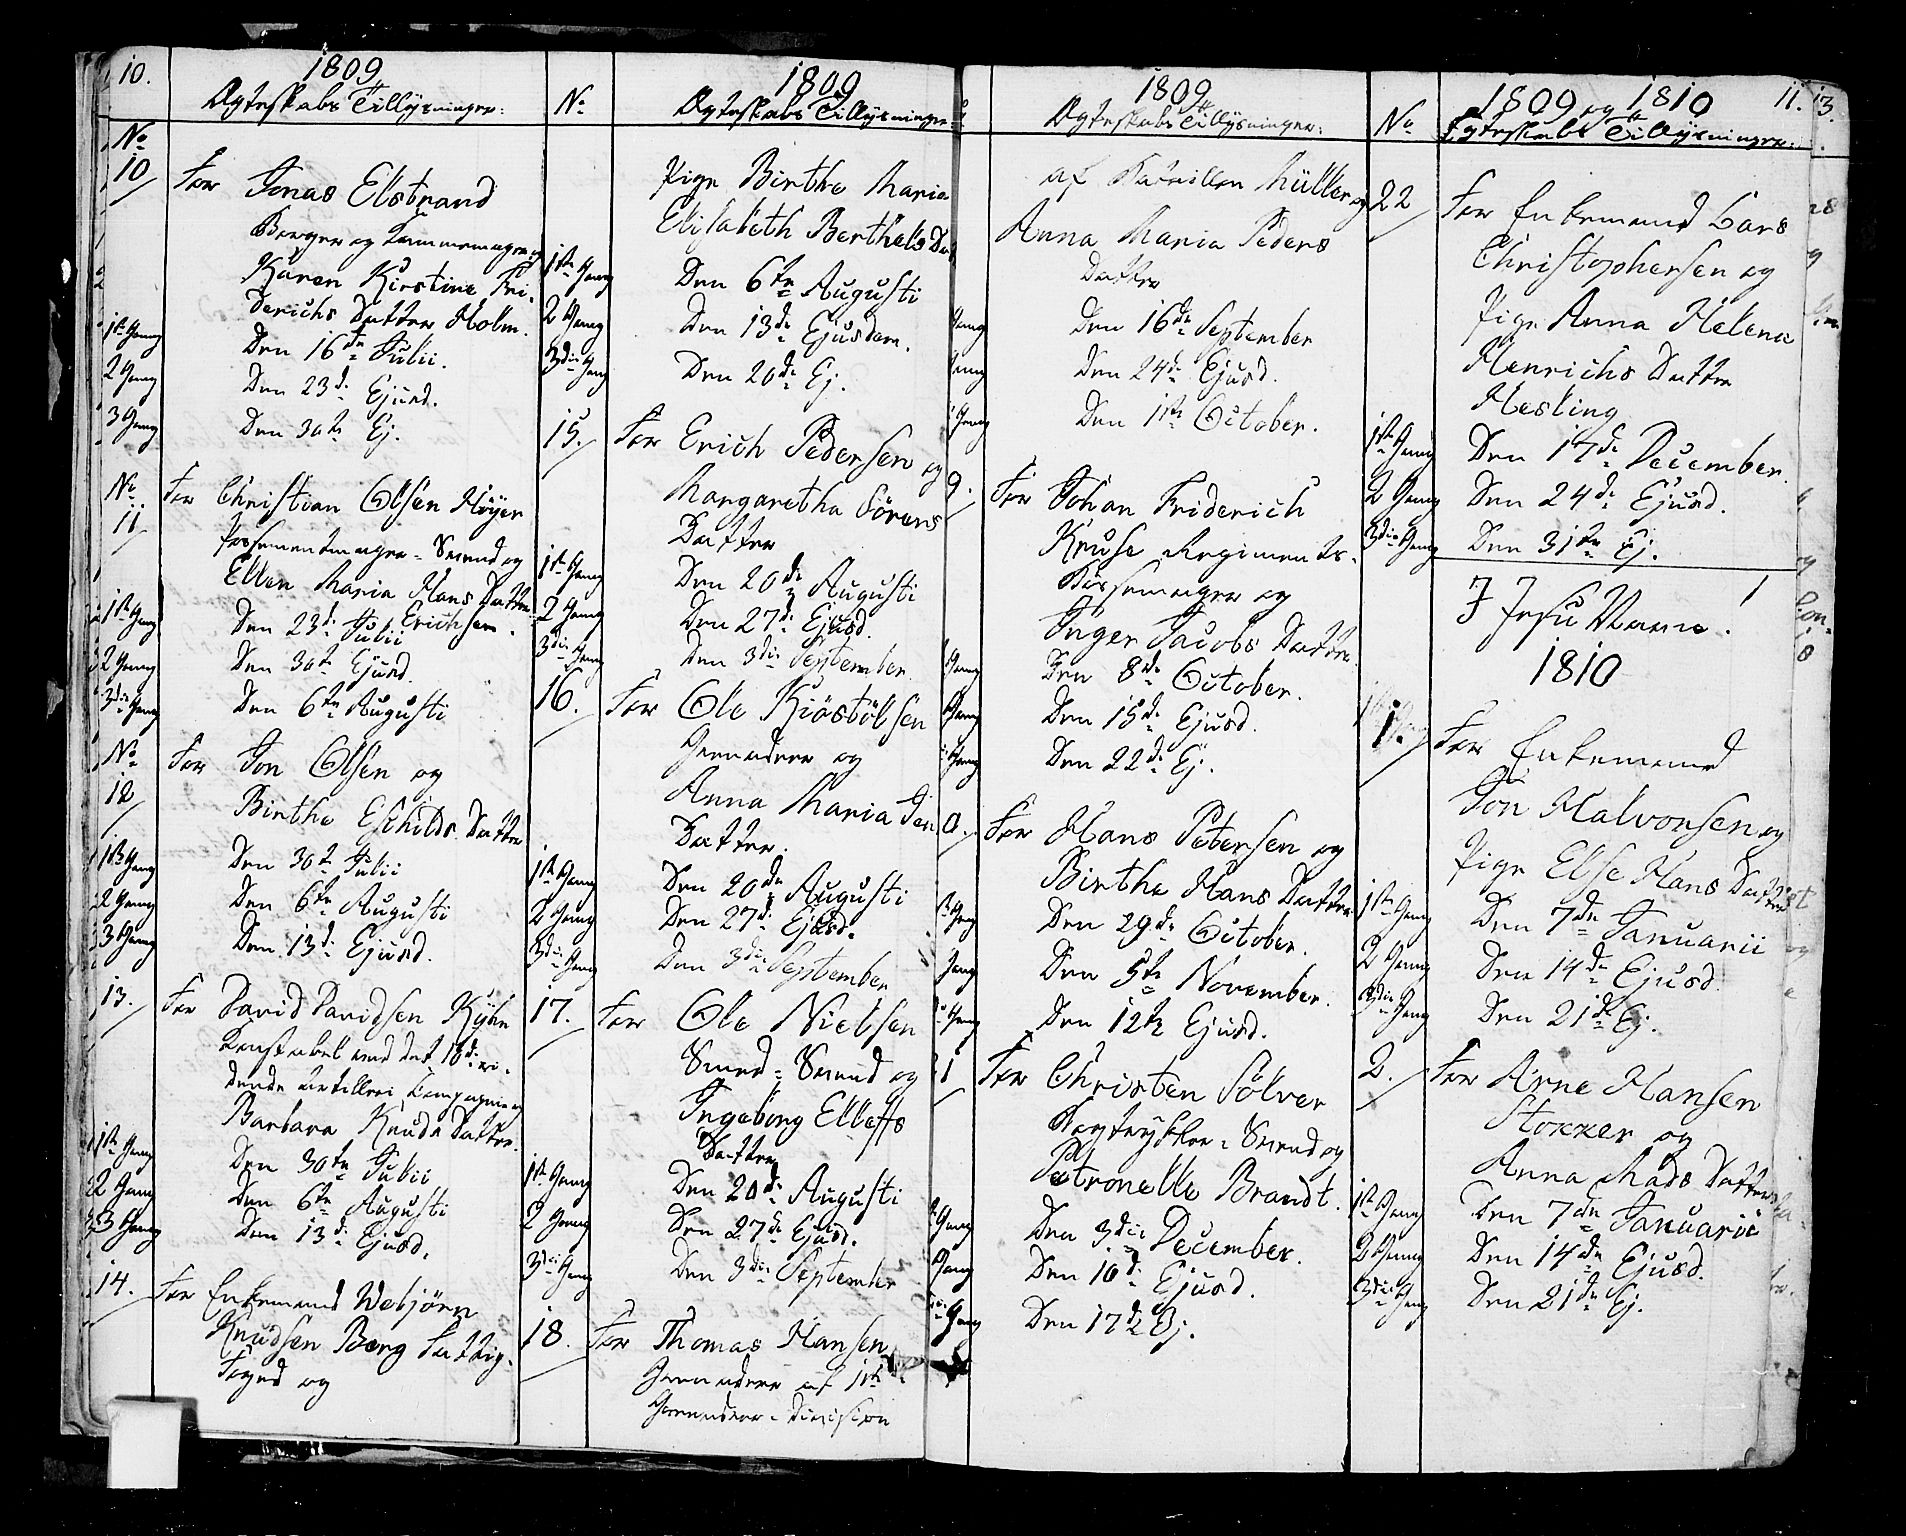 10.
1809
Ægteskabs Tillysninger:
No
10 For Jonas Elstrand
Borger og Kammemager og
Karen Kirstine Fri-
derichs Datter Holm.
1ste Gang Den 16de Julii.
2 Gang Den 23de Ejusd.
3 Gang Den 30te Ej.
No
11 For Christian Olsen Höyer
Possementmager-Svend og
Ellen Maria Hans Datter
Erichsen.
1ste Gang Den 23de Julii
2 Gang Den 30te Ejusd.
3die Gang Den 6te Augusti
No
12 For Jon Olsen og
Birthe Eschilds Datter
1ste Gang Den 30te Julii
2 Gang Den 6te Augusti
3 Gang Den 13de Ejusd.
13. For David Davidsen Kyhn
Konstabel ved det 10de ri-
dende Artilleri Compagnie og
Barbara Knuds Datter.
1ste Gang Den 30te Julii
2 Gang Den 6te Augusti
3 Gang Den 13de Ejusd.
14. For Enkemand Webjörn
Knudsen Berg Fattig-
Foged og
1809
No Ægteskabs Tillysninger:
Pige Birthe Maria
Elisabeth Berthels Dat
1ste Gang Den 6te Augusti
2 Gang Den 13de Ejusdem.
3die Gang Den 20de Ej.
15. For Erich Pedersen og
Margaretha Sörens
Datter
1ste Gang Den 20de Augusti
2 Gang Den 27de Ejusd.
3die Gang Den 3die September.
16. For Ole Kiöstölsen
Grenadeer og
Anna Maria Jen
Datter.
1ste Gang Den 20de Augusti
2 Gang Den 27de Ejusd.
3die Gang Den 3die September
17. For Ole Nielsen
Smed-Svend og
Ingeborg Elleffs
Datter
1ste Gang Den 20de Augusti
2 Gang Den 27de Ejusd.
3die Gang Den 3die September
18. For Thomas Hansen
Grenadeer af 1ste
Grenadeer-Division
1809
Ægteskabs Tillysninger:
af Bataillon Müller og
Anna Maria Peders
Datter
Gang Den 16de September
Gang Den 24de Ejusd.
Gang Den 1ste October.
9. For Johan Friderich
Kruse Regiments-
Bössemager og
Inger Jacobs Datter.
Gang Den 8de October.
Gang Den 15de Ejusd.
Gang Den 22de Ej.
0. For Hans Petersen og
Birthe Hans Datter
Gang Den 29de October.
Gang Den 5te November.
Gang Den 12te Ejusd.
1 For Christen Sölver
Bogtrykker-Svend og
Petronelle Brandt.
Gang Den 3die December.
Gang Den 10de Ejusd.
Gang Den 17de Ej.
1809 og 1810 11.
No Ægteskabs Tillysninger.
22 For Enkemand Lars
Christophersen og
Pige Anna Helena
Henrichs Datter
Hesling
1ste Gang Den 17de December.
2 Gang Den 24de Ejusd.
3die Gang Den 31te Ej.
I Jesu Navn!
1810
1. For Enkemand
Jon Halvorsen og
Pige Else Hans Datter
1ste Gang Den 7de Januarii
2 Gang Den 14de Ejusd.
3die Gang Den 21de Ej.
2. For Arne Hansen
Stokker og
Anna Mads Datter
1ste Gang Den 7de Januarii
2 Gang Den 14de Ejusd.
3die Gang Den 21de Ej.
13.